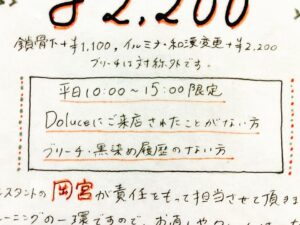 ¥2,200
鎖骨下+¥1,100, イルミナ・和漢変更+¥2,200
ブリーチは対称外です。
平日10:00〜15:00限定
Doluceにご来店されたことがない方
ブリーチ・黒染め履歴のない方
スタントの岡宮が責任をもって担当させて頂きま
レーニングの一環ですので、お直し